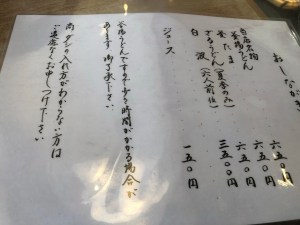 おしながき
白石名物
釜揚うどん 六五〇円
釜たま 六五〇円
ざるうどん(夏季のみ) 六五〇円
白波(六人前位) 三五〇〇円
ジュース 一五〇円
釜揚うどんですので少々時間がかかる場合が
あります 御了承下さい
尚、ダシの入れ方がわからない方は
ご遠慮なくお申しつけ下さい